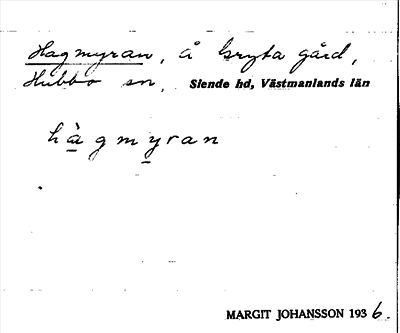 Hagmyran, å Gryta gård,
Hubbo sn, Siende hd, Västmanlands län
hàgmyran
MARGIT JOHANSSON 1936.